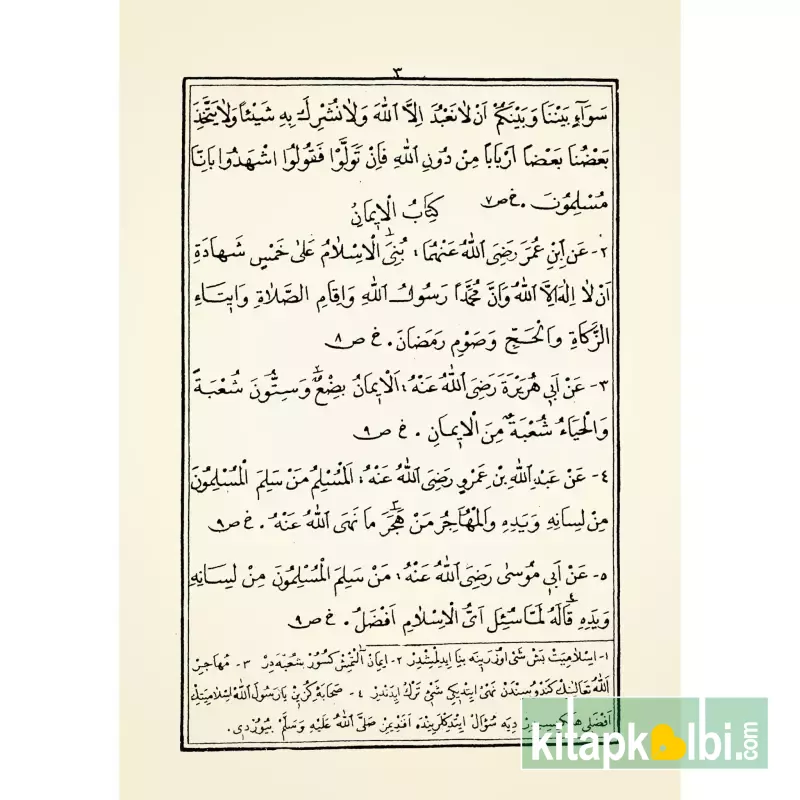 ٣
سَوَآءٍ بَيْنَنَا وَبَيْنَكُمْ اَنْ لَا نَعْبُدَ اِلَّا اللّٰهَ وَلَا نُشْرِكَ بِهِ شَيْئًا وَلَا يَتَّخِذَ
بَعْضُنَا بَعْضًا اَرْبَابًا مِنْ دُونِ اللّٰهِ فَاِنْ تَوَلَّوْا فَقُولُوا اشْهَدُوا بِاَنَّا
مُسْلِمُونَ . خ ص ٧ كِتَابُ الْاِيمَانُ
٢- عَنِ ابْنِ عُمَرَ رَضِيَ اللّٰهُ عَنْهُمَا : بُنِيَ الْاِسْلَامُ عَلٰى خَمْسٍ شَهَادَةِ
اَنْ لَا اِلٰهَ اِلَّا اللّٰهُ وَاَنَّ مُحَمَّدًا رَسُولُ اللّٰهِ وَاِقَامِ الصَّلَاةِ وَاِيتَاءِ
الزَّكَاةِ وَالْحَجِّ وَصَوْمِ رَمَضَانَ . خ ص ٨
٣- عَنْ اَبِي هُرَيْرَةَ رَضِيَ اللّٰهُ عَنْهُ : اَلْاِيمَانُ بِضْعٌ وَسِتُّونَ شُعْبَةً
وَالْحَيَاءُ شُعْبَةٌ مِنَ الْاِيمَانِ . خ ص ٩
٤- عَنْ عَبْدِ اللّٰهِ بْنِ عَمْرٍو رَضِيَ اللّٰهُ عَنْهُ : اَلْمُسْلِمُ مَنْ سَلِمَ الْمُسْلِمُونَ
مِنْ لِسَانِهِ وَيَدِهِ وَالْمُهَاجِرُ مَنْ هَجَرَ مَا نَهَى اللّٰهُ عَنْهُ . خ ص ٩
٥- عَنْ اَبِي مُوسٰى رَضِيَ اللّٰهُ عَنْهُ : مَنْ سَلِمَ الْمُسْلِمُونَ مِنْ لِسَانِهِ
وَيَدِهِ قَالَهُ لَمَّا سُئِلَ اَيُّ الْاِسْلَامِ اَفْضَلُ . خ ص ٩
١- اسلاميت بش شئ اوزرينه بنا ايدلمشدر ٢- ايمان آلتمش كسور شعبه در ٣- مهاجر
الله تعالينك كندوسندن نهى ايتديكى شئى ترك ايدندر ٤- صحابۀ كزين يا رسول الله اسلاميتك
افضلى ديه سؤال ايتدكلرينده افنديمز صَلَّى اللّٰهُ عَلَيْهِ وَسَلَّمَ بيوردى .
kitapkalbi.com